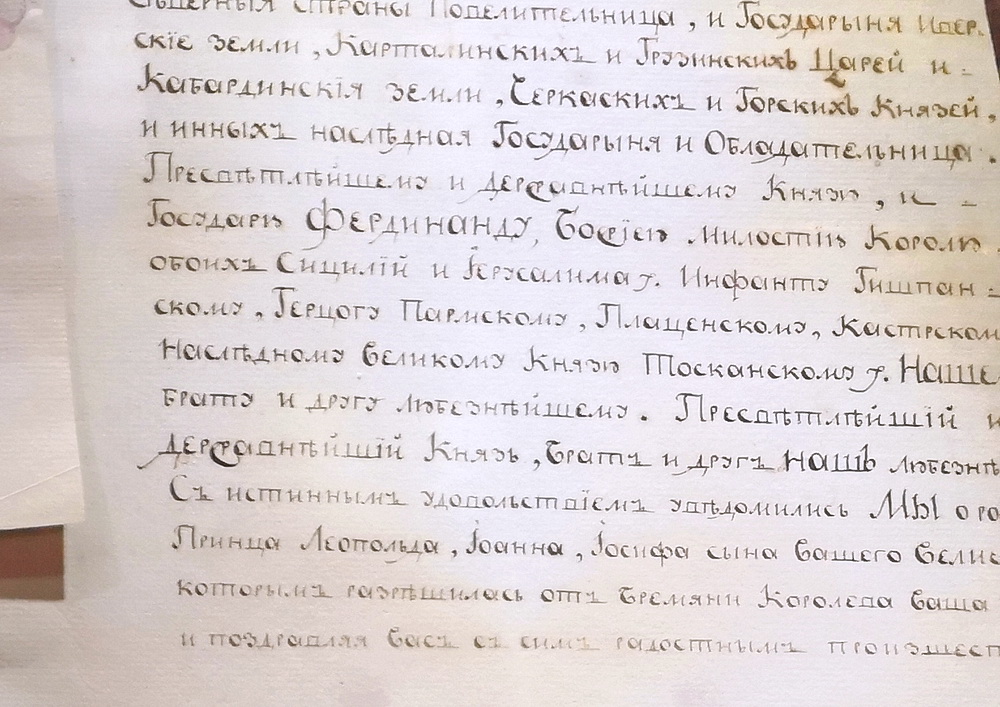 Сѣверныя страны Повелительница, и Государыня Ивер-
скіе земли, Карталинскихъ и Грузинскихъ Царей и -
Кабардинскія земли, Черкаскихъ и Горскихъ Князей,
и инныхъ наслѣдная Государыня и Обладательница.
Пресвѣтлѣйшему и державнѣйшему Князю, и -
Государю Фердинанду, Божіею милостію Королю
обоихъ Сицилій и Іерусалима ⁊. Инфанту Гишпан-
скому, Герцогу Пармскому, Плаценскому, Кастрском
Наслѣдному Великому Князю Тосканскому ⁊. Наше
брату и другу любезнѣйшему. Пресвѣтлѣйшій и
державнѣйшій Князь, Братъ и другъ нашъ любезнѣ
Съ истиннымъ удовольствіемъ увѣдомились Мы о ро
Принца Леопольда, Іоанна, Іосифа сына Вашего Велич
которымъ разрѣшилась отъ бремяни Королева Ваша
и поздравляя Васъ съ симъ радостнымъ произшест